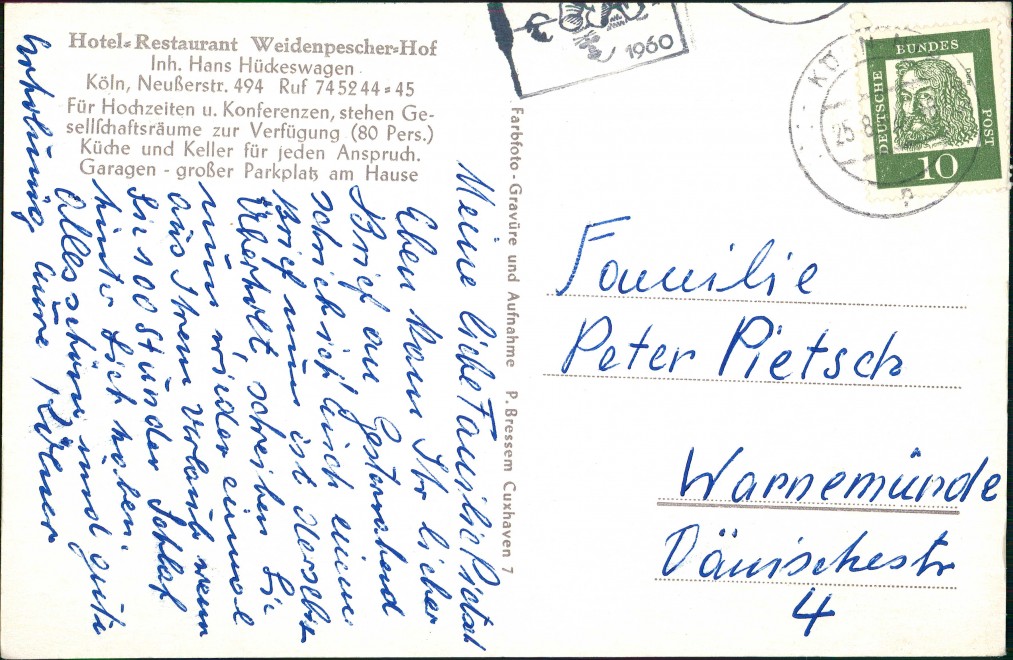 Hotel=Restaurant Weidenpescher=Hof
Inh. Hans Hückeswagen
Köln, Neußerstr. 494 Ruf 745244=45
Für Hochzeiten u. Konferenzen, stehen Ge-
sellschaftsräume zur Verfügung (80 Pers.)
Küche und Keller für jeden Anspruch.
Garagen - großer Parkplatz am Hause
Meine liebe Familie
Eben kam Ihr lieber
Brief an Gestern Abend
schrieb ich auch einen
Brief nun ist der schon
überholt, schreiben Sie
nun wieder einmal
aus Ihrem Urlaub wenn
Sie 100 Stunden Schlaf
hinter sich haben.
Alles schöne und gute
Erholung
Farbfoto - Gravüre und Aufnahme P. Bressem Cuxhaven 7
1960
KÖLN
25.8
DEUTSCHE
BUNDES
POST
10
Familie
Peter Pietsch
Warnemünde
Dänischestr
4